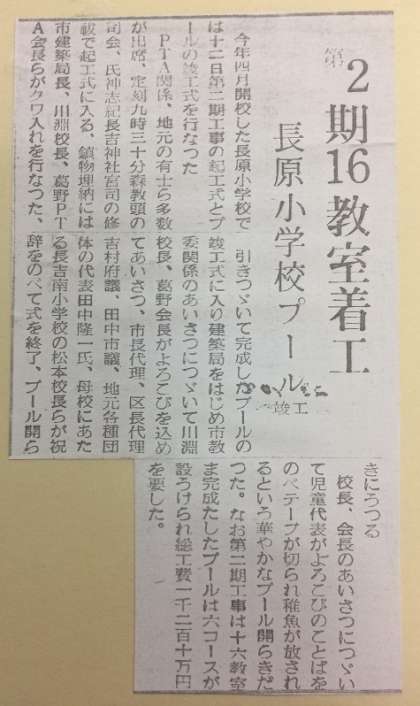 第2期16教室着工
長原小学校プール
竣工
今年四月開校した長原小学校で
は十二日第二期工事の起工式とプ
ールの竣工式を行なつた
PTA関係、地元の有士ら多数
が出席、定刻九時三十分森教頭の
司会、氏神志紀長吉神社宮司の修
祓で起工式に入る、鎮物埋納には
市建築局長、川淵校長、葛野PT
A会長らがクワ入れを行なつた、
引きつゞいて完成したプールの
竣工式に入り建築局をはじめ市教
委関係のあいさつにつゞいて川淵
校長、葛野会長がよろこびを込め
てあいさつ、市長代理、区長代理
吉村府議、田中市議、地元各種団
体の代表田中隆一氏、母校にあた
る長吉南小学校の松本校長らが祝
辞をのべて式を終了、プール開ら
きにうつる
校長、会長のあいさつにつゞい
て児童代表がよろこびのことばを
のべテープが切られ稚魚が放され
るという華やかなプール開らきだ
つた。なお第二期工事は十六教室
ま完成たしたプールは六コースが
設ろけられ総工費一千二百十万円
を要した。